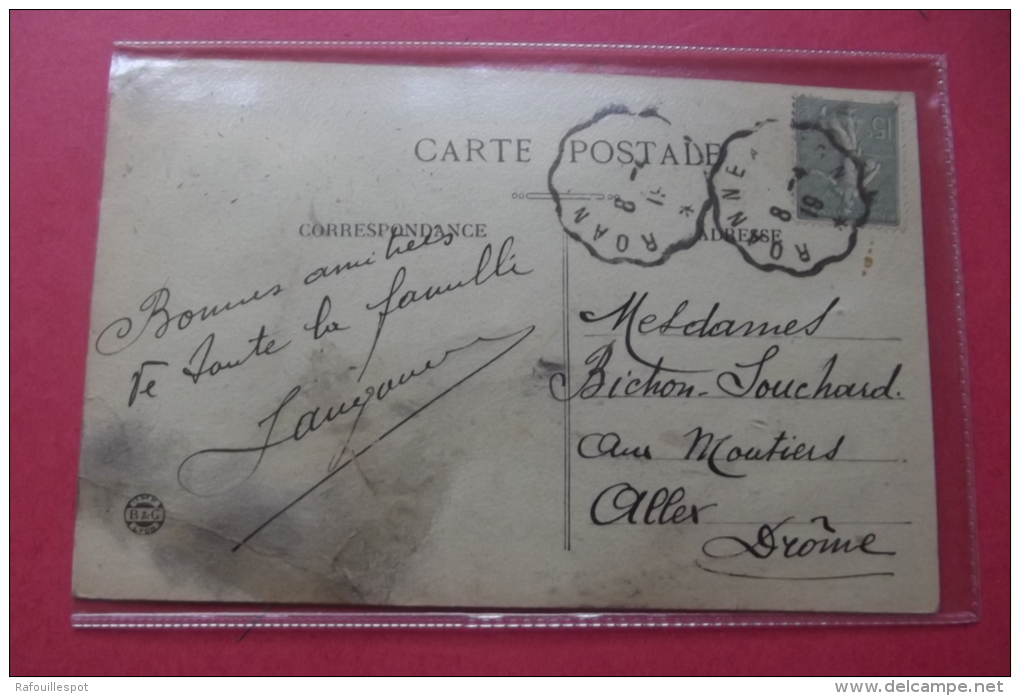 CARTE POSTALE
CORRESPONDANCE
ADRESSE
15c
ROANNE
8 -4
19
ROAN
8 -4
Bonnes amitiés
de toute la famille
Mesdames
Bichon-Souchard.
aux Moutiers
Allex
Drôme
B&G
LYON
Rafouillespot
www.delcampe.net